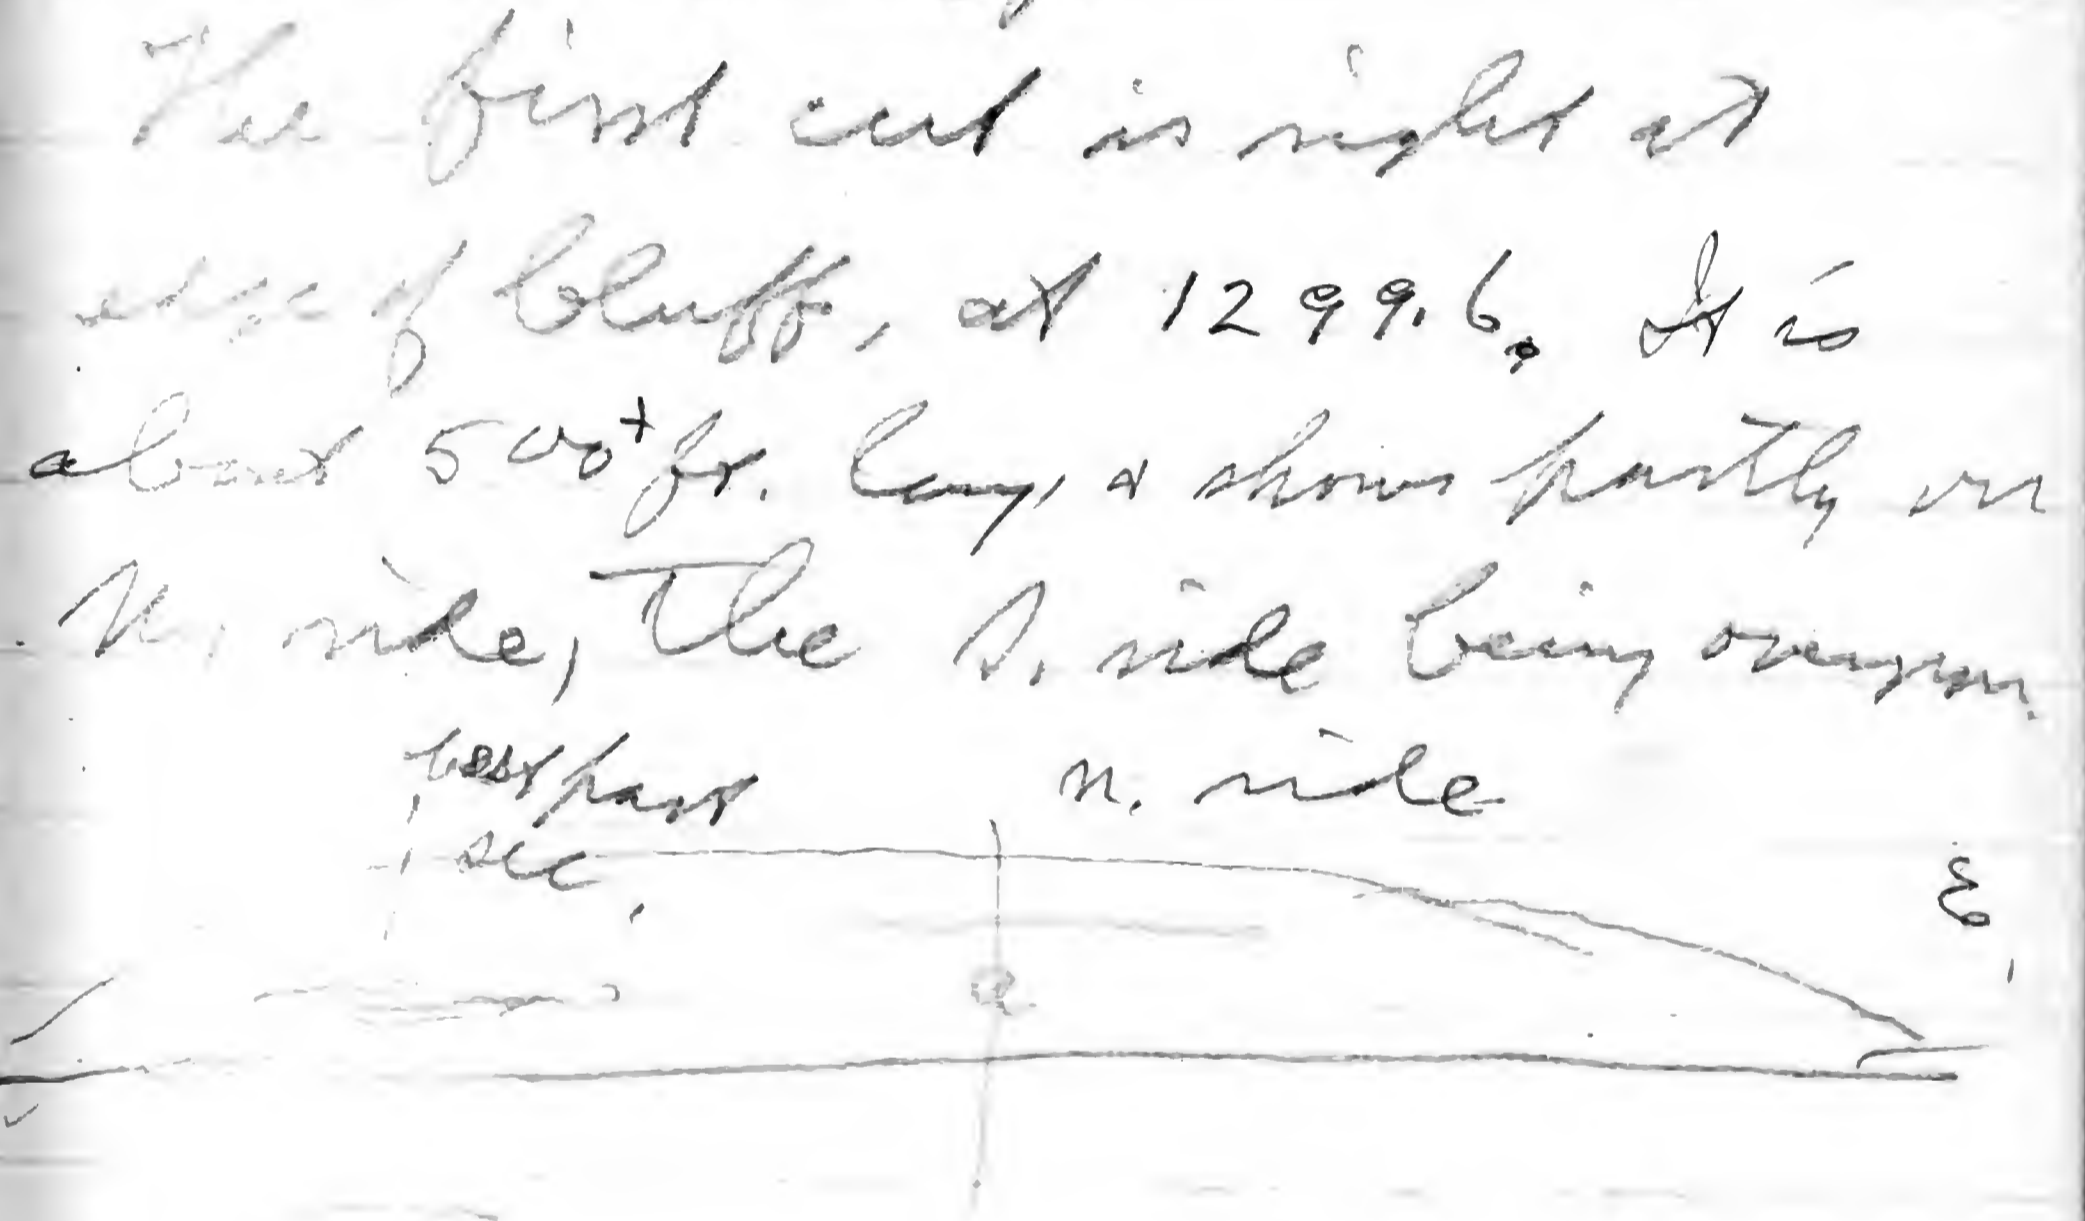 The first cut is right at
edge of bluff, at 1299.6. It is
about 500+ ft. long, & shows partly on
N. side, the S. side being overgrn.
best part n. side
sec.
E.
a